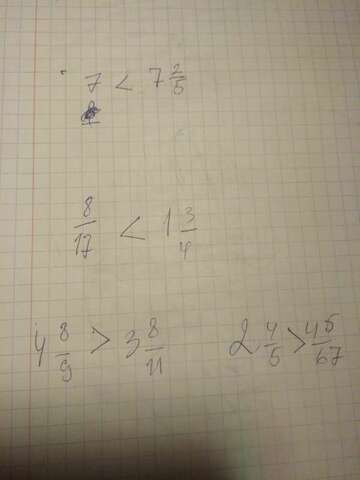 7 < 7 2/5
8/17 < 1 3/4
4 8/9 > 3 8/11
2 4/5 > 45/67